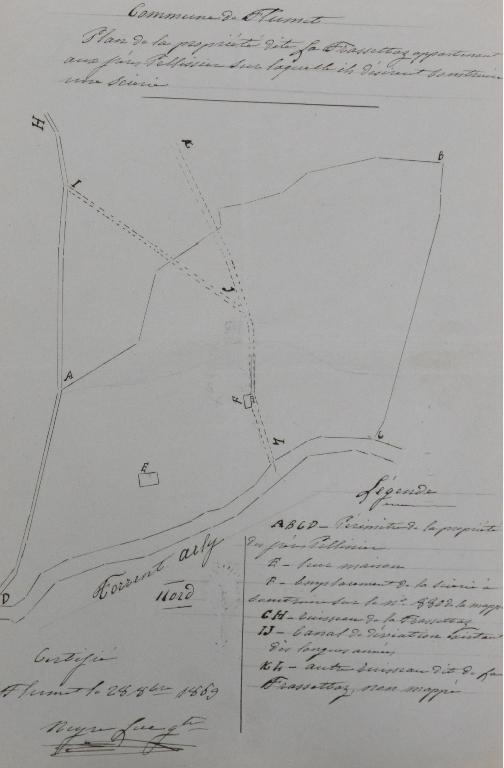 Commune de Flumet
Plan de la propriété dite La Frassettaz appartenant
aux frères Pellissier sur laquelle ils désirent construire
une scierie
H
K
B
I
J
A
F
L
C
E
D
Torrent Arly
Nord
Légende
ABCD - Périmètre de la propriété
des frères Pellissier
E - leur maison
F - Emplacement de la scierie à
construire sur le n° 880 de la mappe
CH - ruisseau de la Frassettaz
IJ - Canal de déviation
dès longues années
KL - autre ruisseau dit de la
Frassettaz, non mappé
Certifié
Flumet le 28 8bre 1869